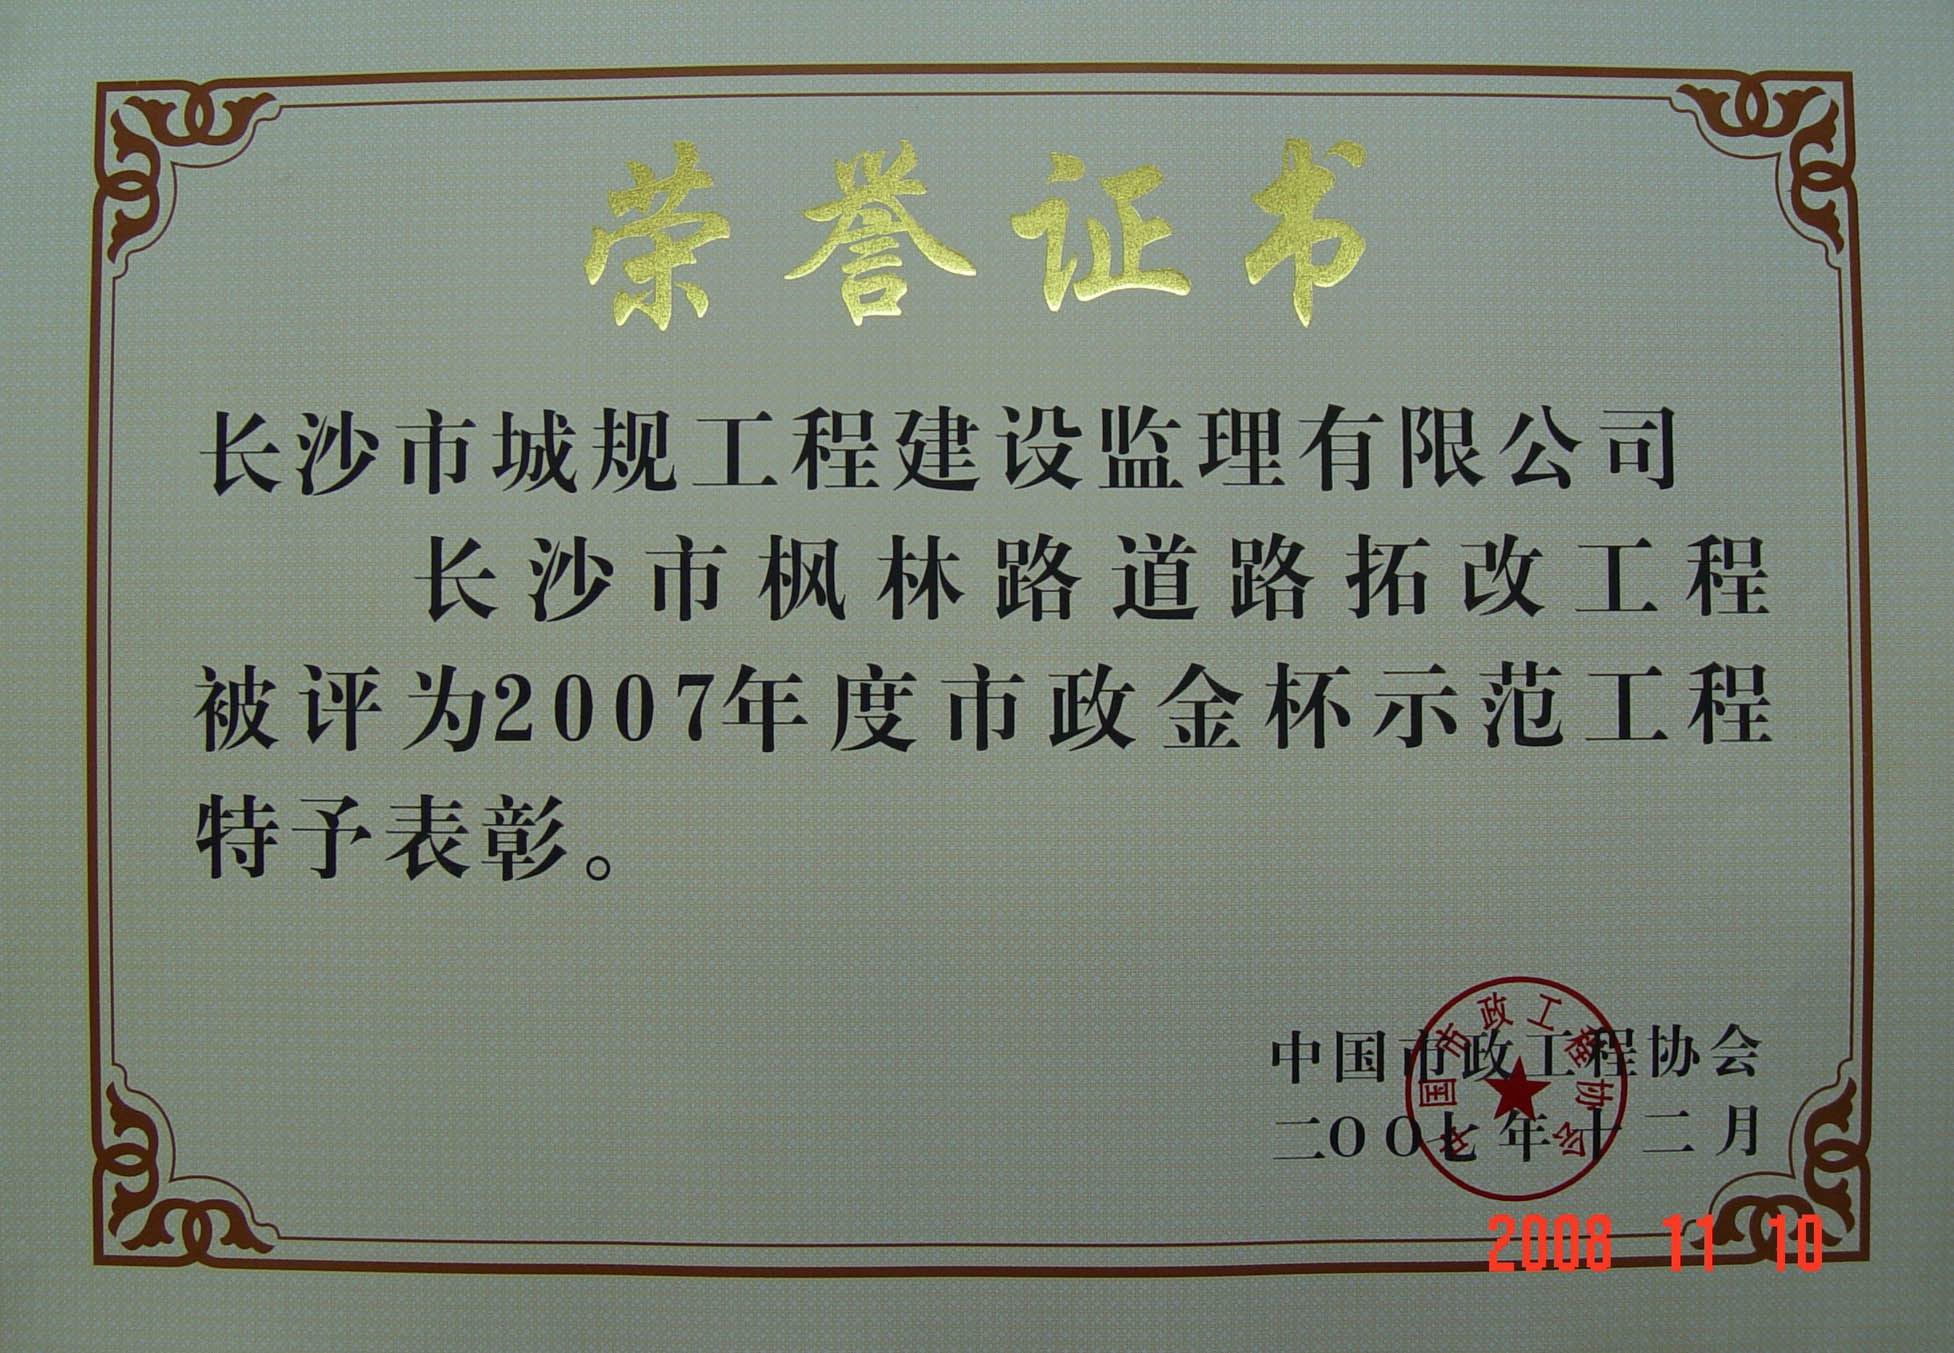 荣誉证书
长沙市城规工程建设监理有限公司
长沙市枫林路道路拓改工程
被评为2007年度市政金杯示范工程
特予表彰。
中国市政工程协会
二OO七年十二月
中国市政工程协会
2008 11 10